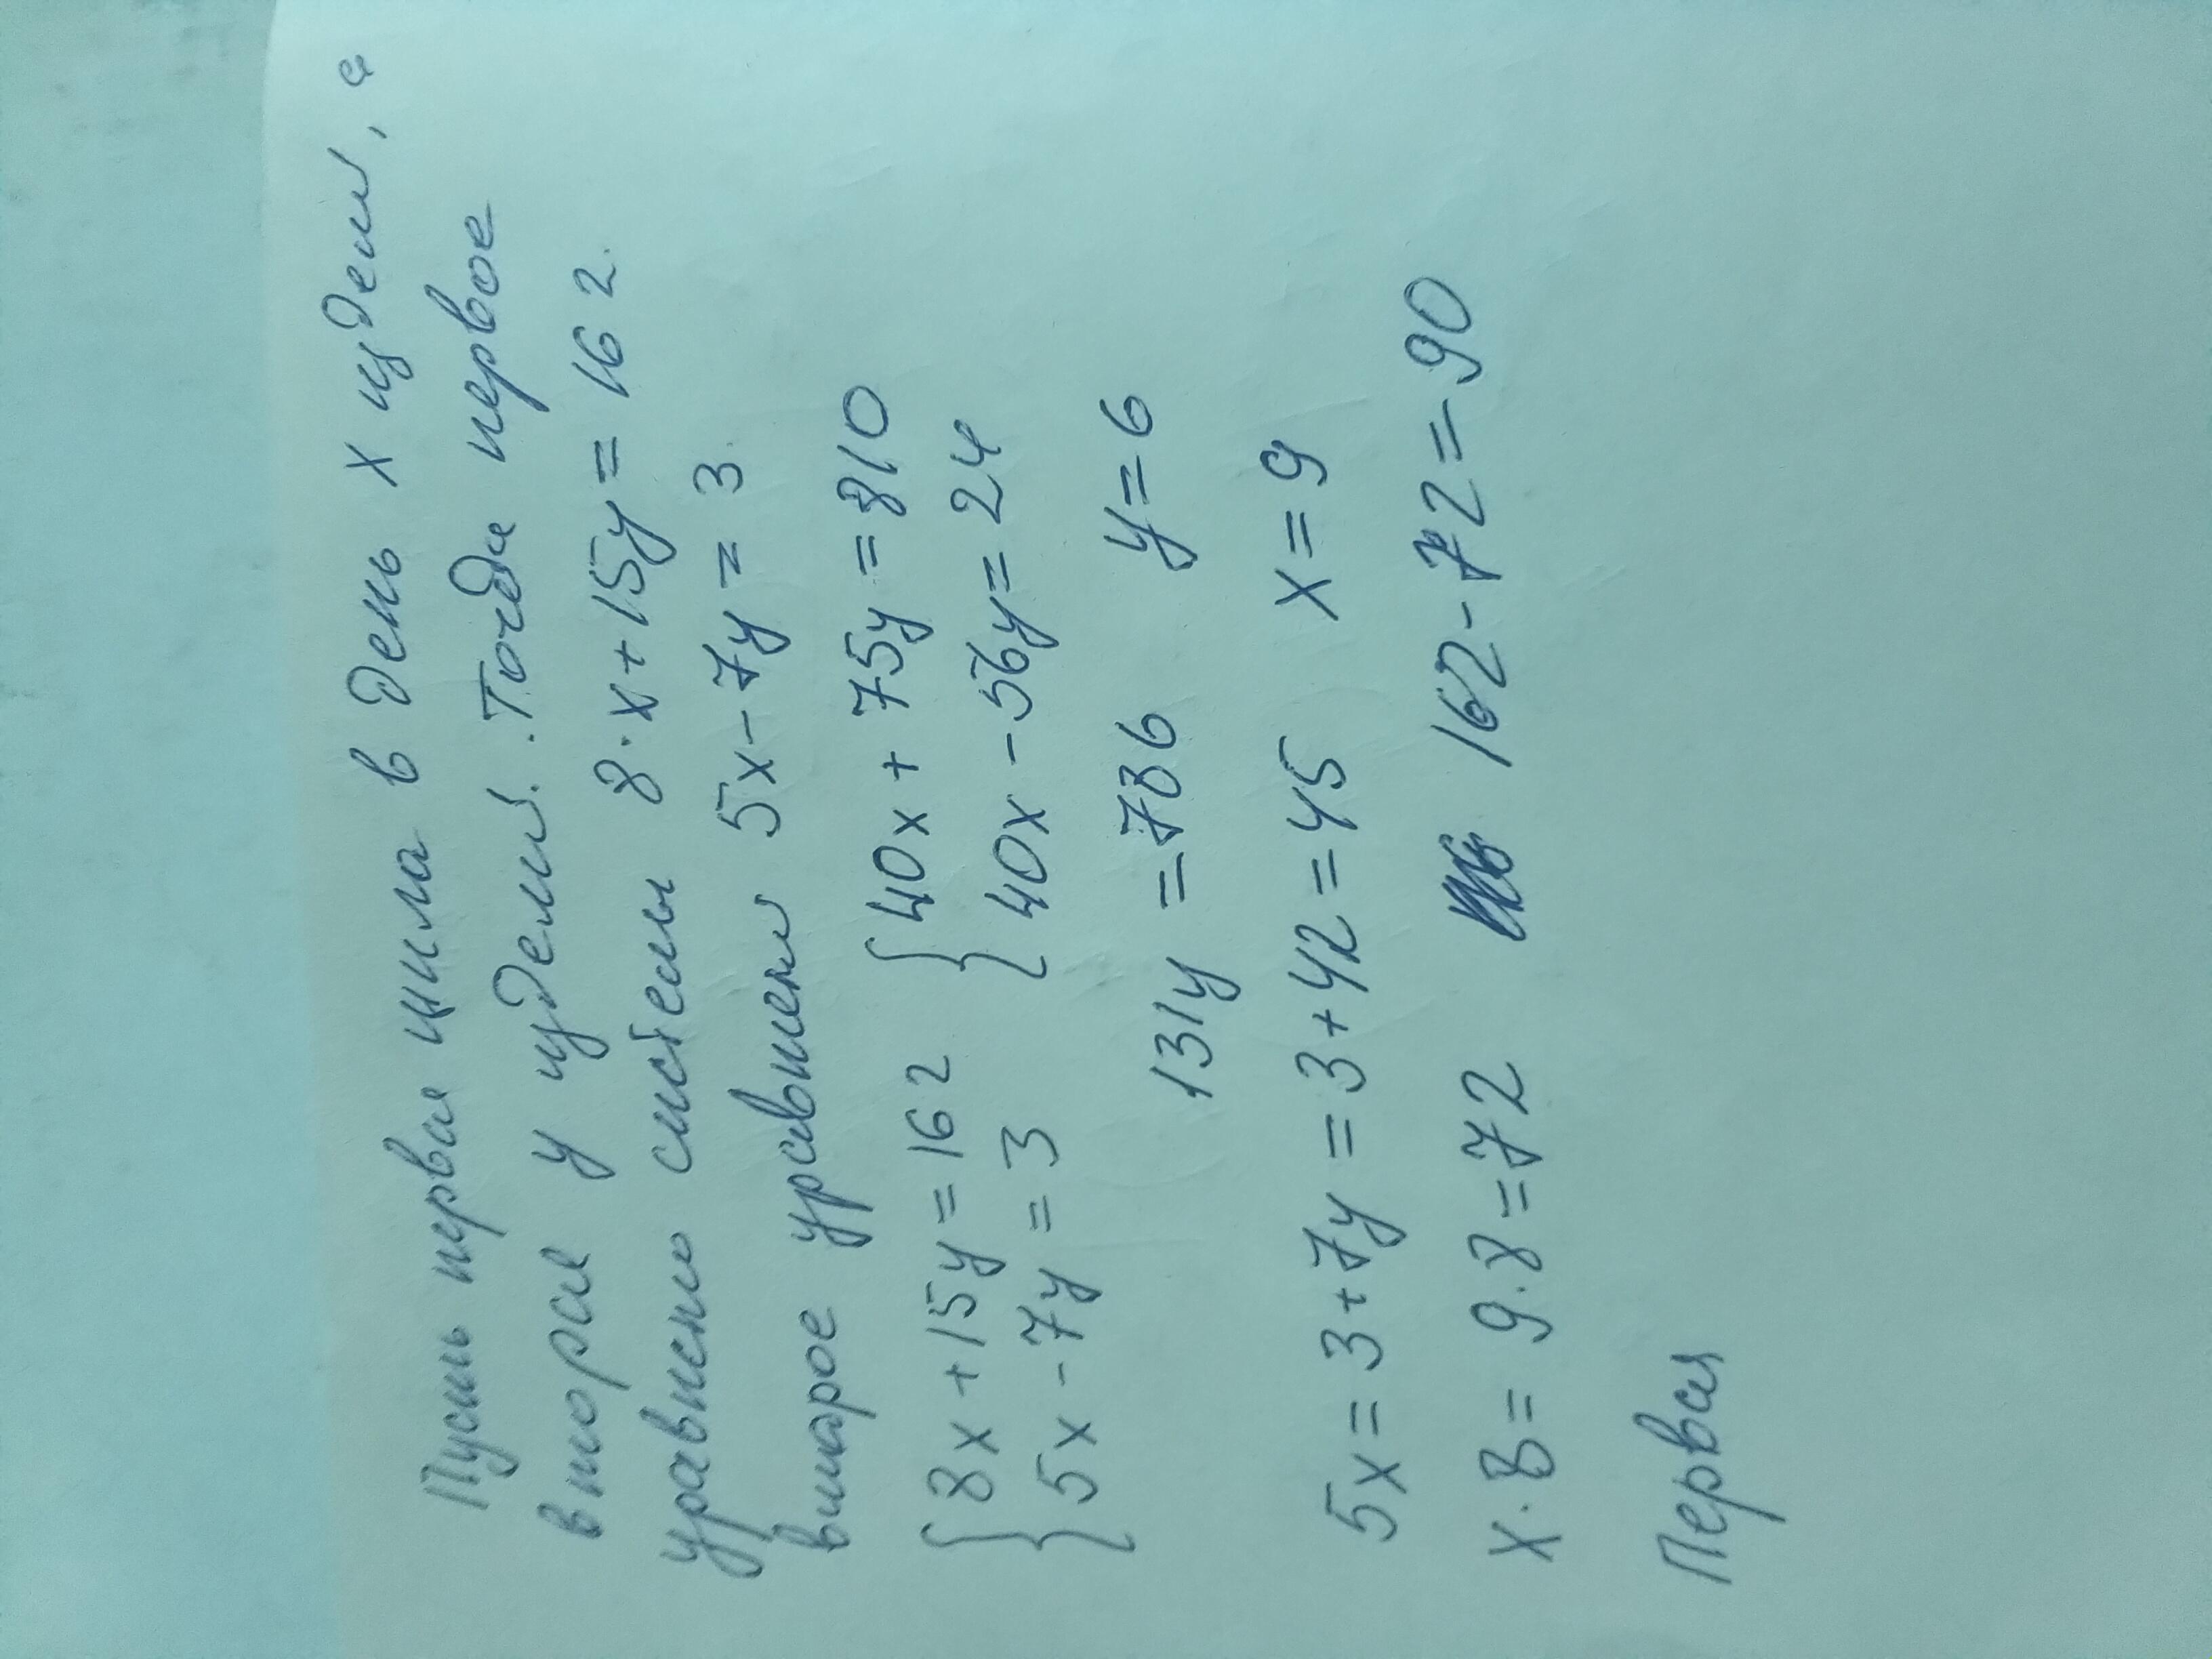 Пусть первая шила в день x издели, а
вторая y издели. Тогда первое
уравнено системы 8·x+15y=162.
второе уравнени 5x-7y=3.
{8x+15y=162 {40x+75y=810
{5x-7y=3 {40x-56y=24
131y=786 y=6
5x=3+7y=3+42=45 x=9
x·8=9·8=72 162-72=90
Первая